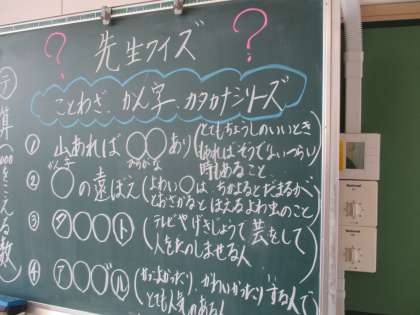 ? 先生クイズ ?
ことわざ、かん字、カタカナシリーズ
① 山あれば○○あり(とてもちょうしのいいときも
ひらがな
あればそうでないつらい
時もあること
かん字
② ○の遠ぼえ(よわい○は、ちかよるとだまるが
とおざかるとほえるよわ虫のこと
③ タ○○ト(テレビやげきじょうで芸をして
人をたのしませる人
④ ア○○ブル(かっこよかったり、かわいかったりする人で
とても人気のある人
テ
算
1000をこえる数
National
National